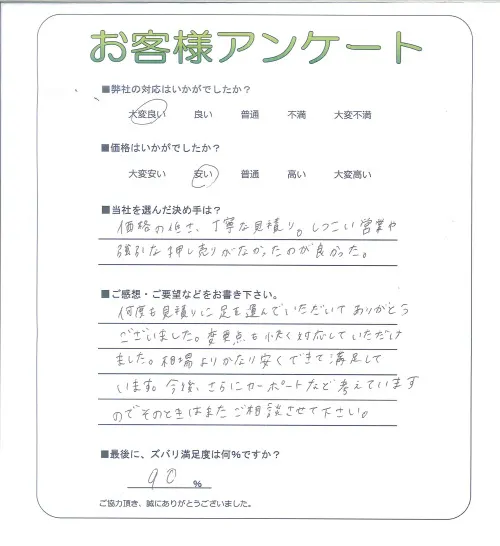 お客様アンケート
■弊社の対応はいかがでしたか？
大変良い　良い　普通　不満　大変不満
■価格はいかがでしたか？
大変安い　安い　普通　高い　大変高い
■当社を選んだ決め手は？
価格の低さ、丁寧な見積り。しつこい営業や
強引な押し売りがなかったのが良かった。
■ご感想・ご要望などをお書き下さい。
何度も見積りに足を運んでいただいてありがとう
ございました。変更点も快く対応していただけ
ました。相場よりかなり安くできて満足して
います。今後、さらにカーポートなど考えています
のでそのときはまたご相談させて下さい。
■最後に、ズバリ満足度は何%ですか？
90 %
ご協力頂き、誠にありがとうございました。